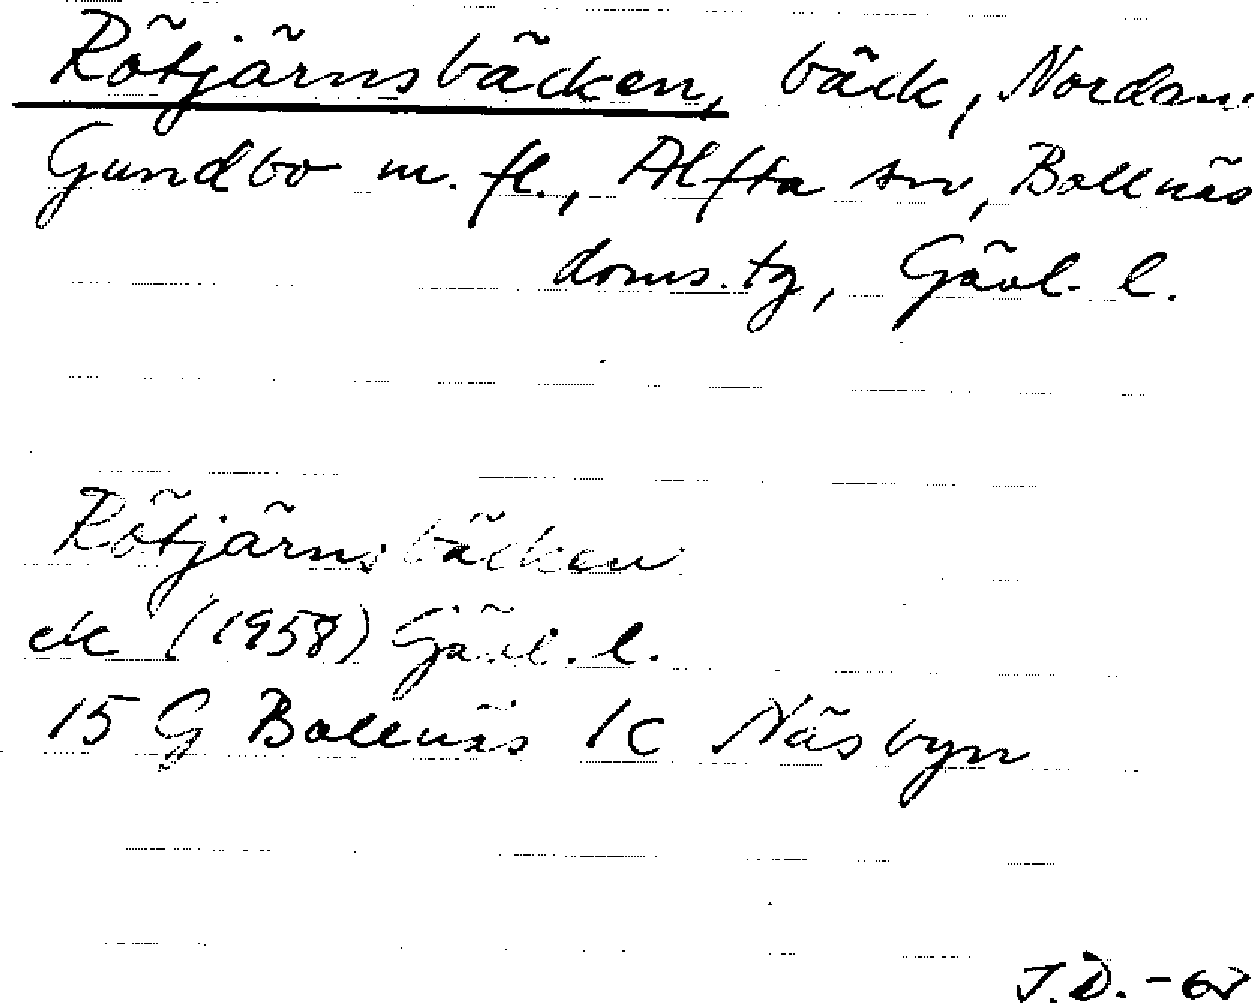 Rötjärnsbäcken, bäck, Nordan-
Gundbo m. fl., Alfta sn, Bollnäs
doms. tg, Gävl. l.
Rötjärnsbäcken
ek (1958) Gävl. l.
15 G Bollnäs 1c Näsbyn
J.D. -67